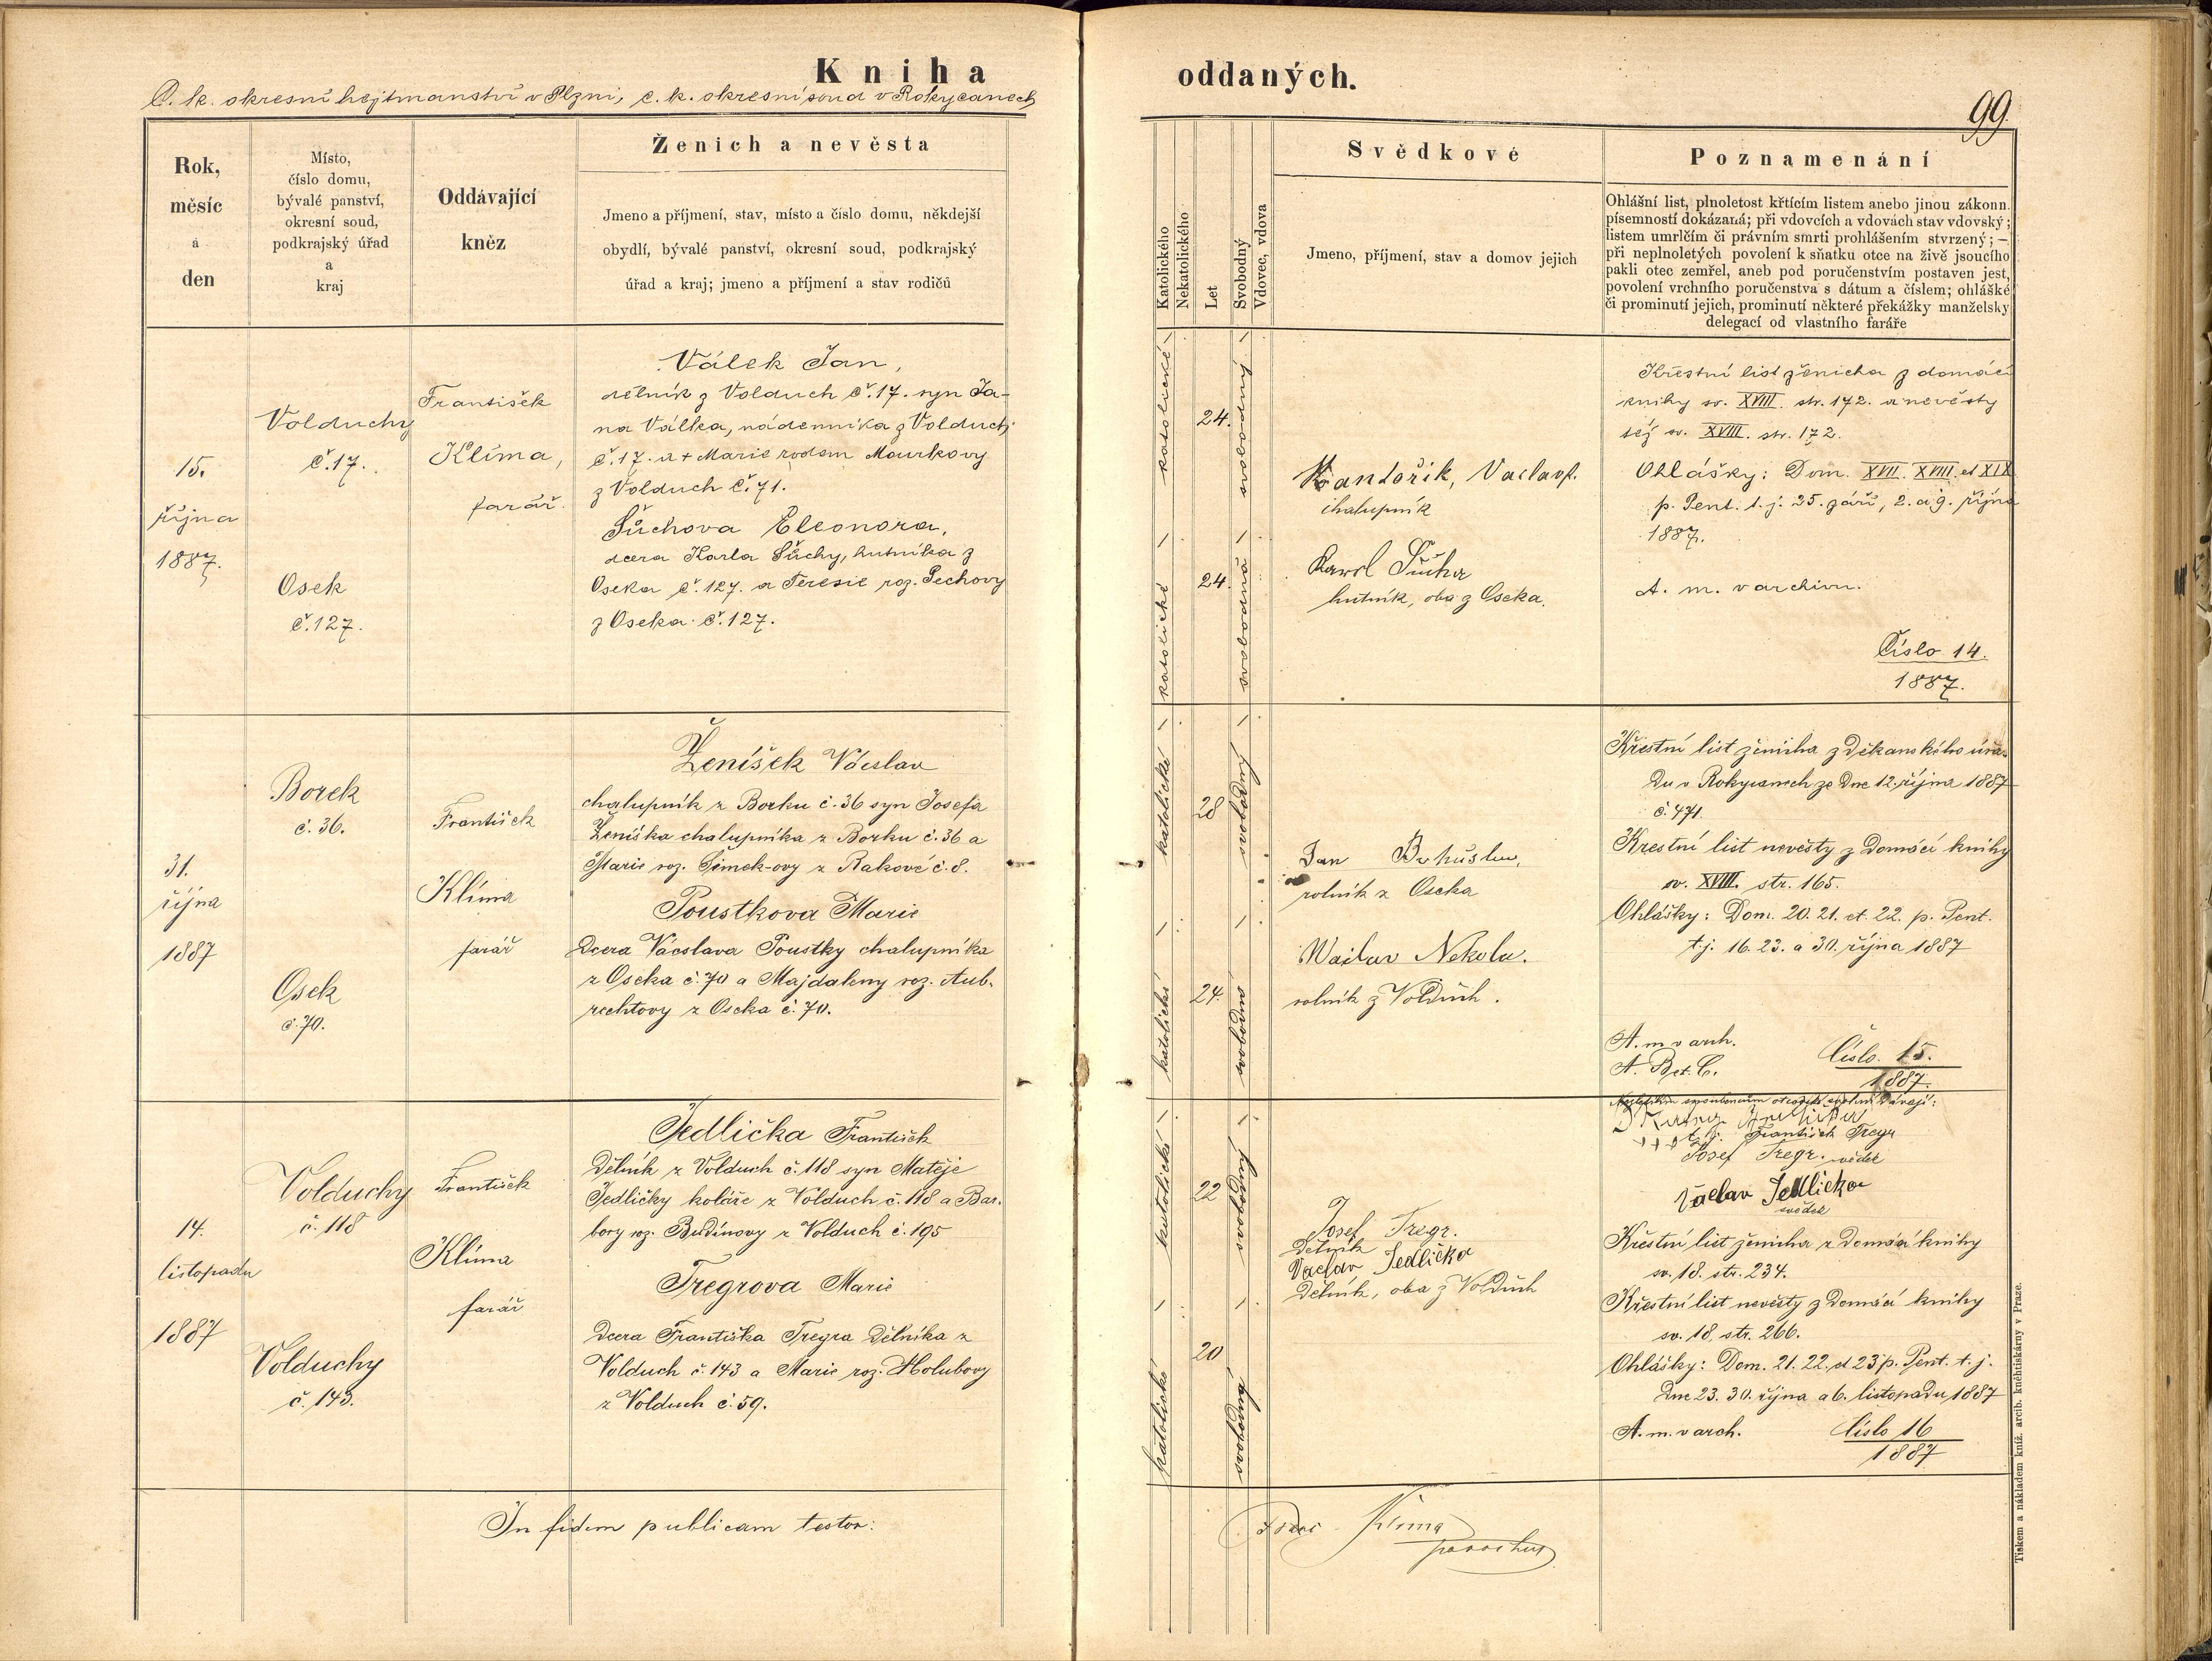 Kniha oddaných.
C. k. okresní hejtmanství v Plzni, c. k. okresní soud v Rokycanech
99
Rok,
měsíc
a
den
Místo,
číslo domu,
bývalé panství,
okresní soud,
podkrajský úřad
a
kraj
Oddávající
kněz
Ženich a nevěsta
Jmeno a příjmení, stav, místo a číslo domu, někdejší
obydlí, bývalé panství, okresní soud, podkrajský
úřad a kraj; jmeno a příjmení a stav rodičů
Katolického
Nekatolického
Let
Svobodný
Vdovec, vdova
Svědkové
Jmeno, příjmení, stav a domov jejich
Poznamenání
Ohlášní list, plnoletost křtícím listem anebo jinou zákonn.
písemností dokázaná; při vdovcích a vdovách stav vdovský;
listem umrlčím či právním smrti prohlášením stvrzený; —
při neplnoletých povolení k sňatku otce na živě jsoucího
pakli otec zemřel, aneb pod poručenstvím postaven jest,
povolení vrchního poručenstva s dátum a číslem; ohláške
či prominutí jejich, prominutí některé překážky manželsky
delegací od vlastního faráře
15.
října
1887.
Volduchy
č. 17.
Osek
č. 127.
František
Klíma,
farář.
Válek Jan,
dělník z Volduch č. 17. syn Ja-
na Válka, nádenníka z Volduch
č. 17. a + Marie rodem Mourkovy
z Volduch č. 71.
Šůchova Eleonora,
dcera Karla Šůchy, hutníka z
Oseka č. 127. a Terezie roz. Pechovy
z Oseka č. 127.
katolické
katolické
24.
24.
svobodný
svobodná
Kandořík, Vaclav
chalupník
Karel Šůcha
hutník, oba z Oseka.
Křestní list ženicha z domácí
knihy sv. XVIII. str. 172. a nevěsty
též sv. XVIII. str. 172.
Ohlášky: Dom. XVII. XVIII. et XIX
p. Pent. t. j. 25. září, 2. a 9. října
1887.
A. m. v archivu.
Číslo 14.
1887.
31.
října
1887
Borek
č. 36.
Osek
č. 70.
František
Klíma
farář
Ženíšek Václav
chalupník z Borku č. 36 syn Josefa
Ženíška chalupníka z Borku č. 36 a
Marie roz. Šimek-ovy z Rakové č. 8.
Poustkova Marie
dcera Vácslava Poustky chalupníka
z Oseka č. 70 a Majdaleny roz. Aub-
rechtovy z Oseka č. 70.
katolické
katolické
28
24.
svobodný
svobodna
Jan Bohuslav,
rolník z Oseka
Waclav Nekola.
rolník z Volduch.
Křestní list ženicha z děkanského úřa-
du v Rokycanech ze dne 12. října 1887
č. 471.
Křestní list nevěsty z domácí knihy
sv. XVIII. str. 165.
Ohlášky: Dom. 20. 21. et. 22. p. Pent.
t. j. 16. 23. a 30. října 1887
A. m v arch.
A. Bet. C.
Číslo. 15.
1887.
14.
listopadu
1887
Volduchy
č. 118
Volduchy
č. 143.
František
Klíma
farář
Jedlička František
dělník z Volduch č. 118 syn Matěje
Jedličky koláře z Volduch č. 118 a Bar-
bory roz. Budínovy z Volduch č. 195
Tregrova Marie
dcera Františka Tregra dělníka z
Volduch č. 143 a Marie roz. Holubovy
z Volduch č. 59.
katolické
katolické
22
20
svobodný
svobodná
Josef Tregr.
dělník
Vaclav Jedlička
dělník, oba z Volduch
Nezletilým snoubencům otcové svolení dávají:
+++ t. j. František Tregr
Josef Tregr. svědek
Vaclav Jedlicka
svědek
Křestní list ženicha z domácí knihy
sv. 18. str. 234.
Křestní list nevěsty z domácí knihy
sv. 18, str. 266.
Ohlášky: Dom. 21. 22. et 23 p. Pent. t. j.
dne 23. 30. října a 6. listopadu 1887
A. m. v arch.
Číslo 16
1887
In fidem publicam testor:
Klima
parochus
Tiskem a nákladem kníž. arcib. knihtiskárny v Praze.